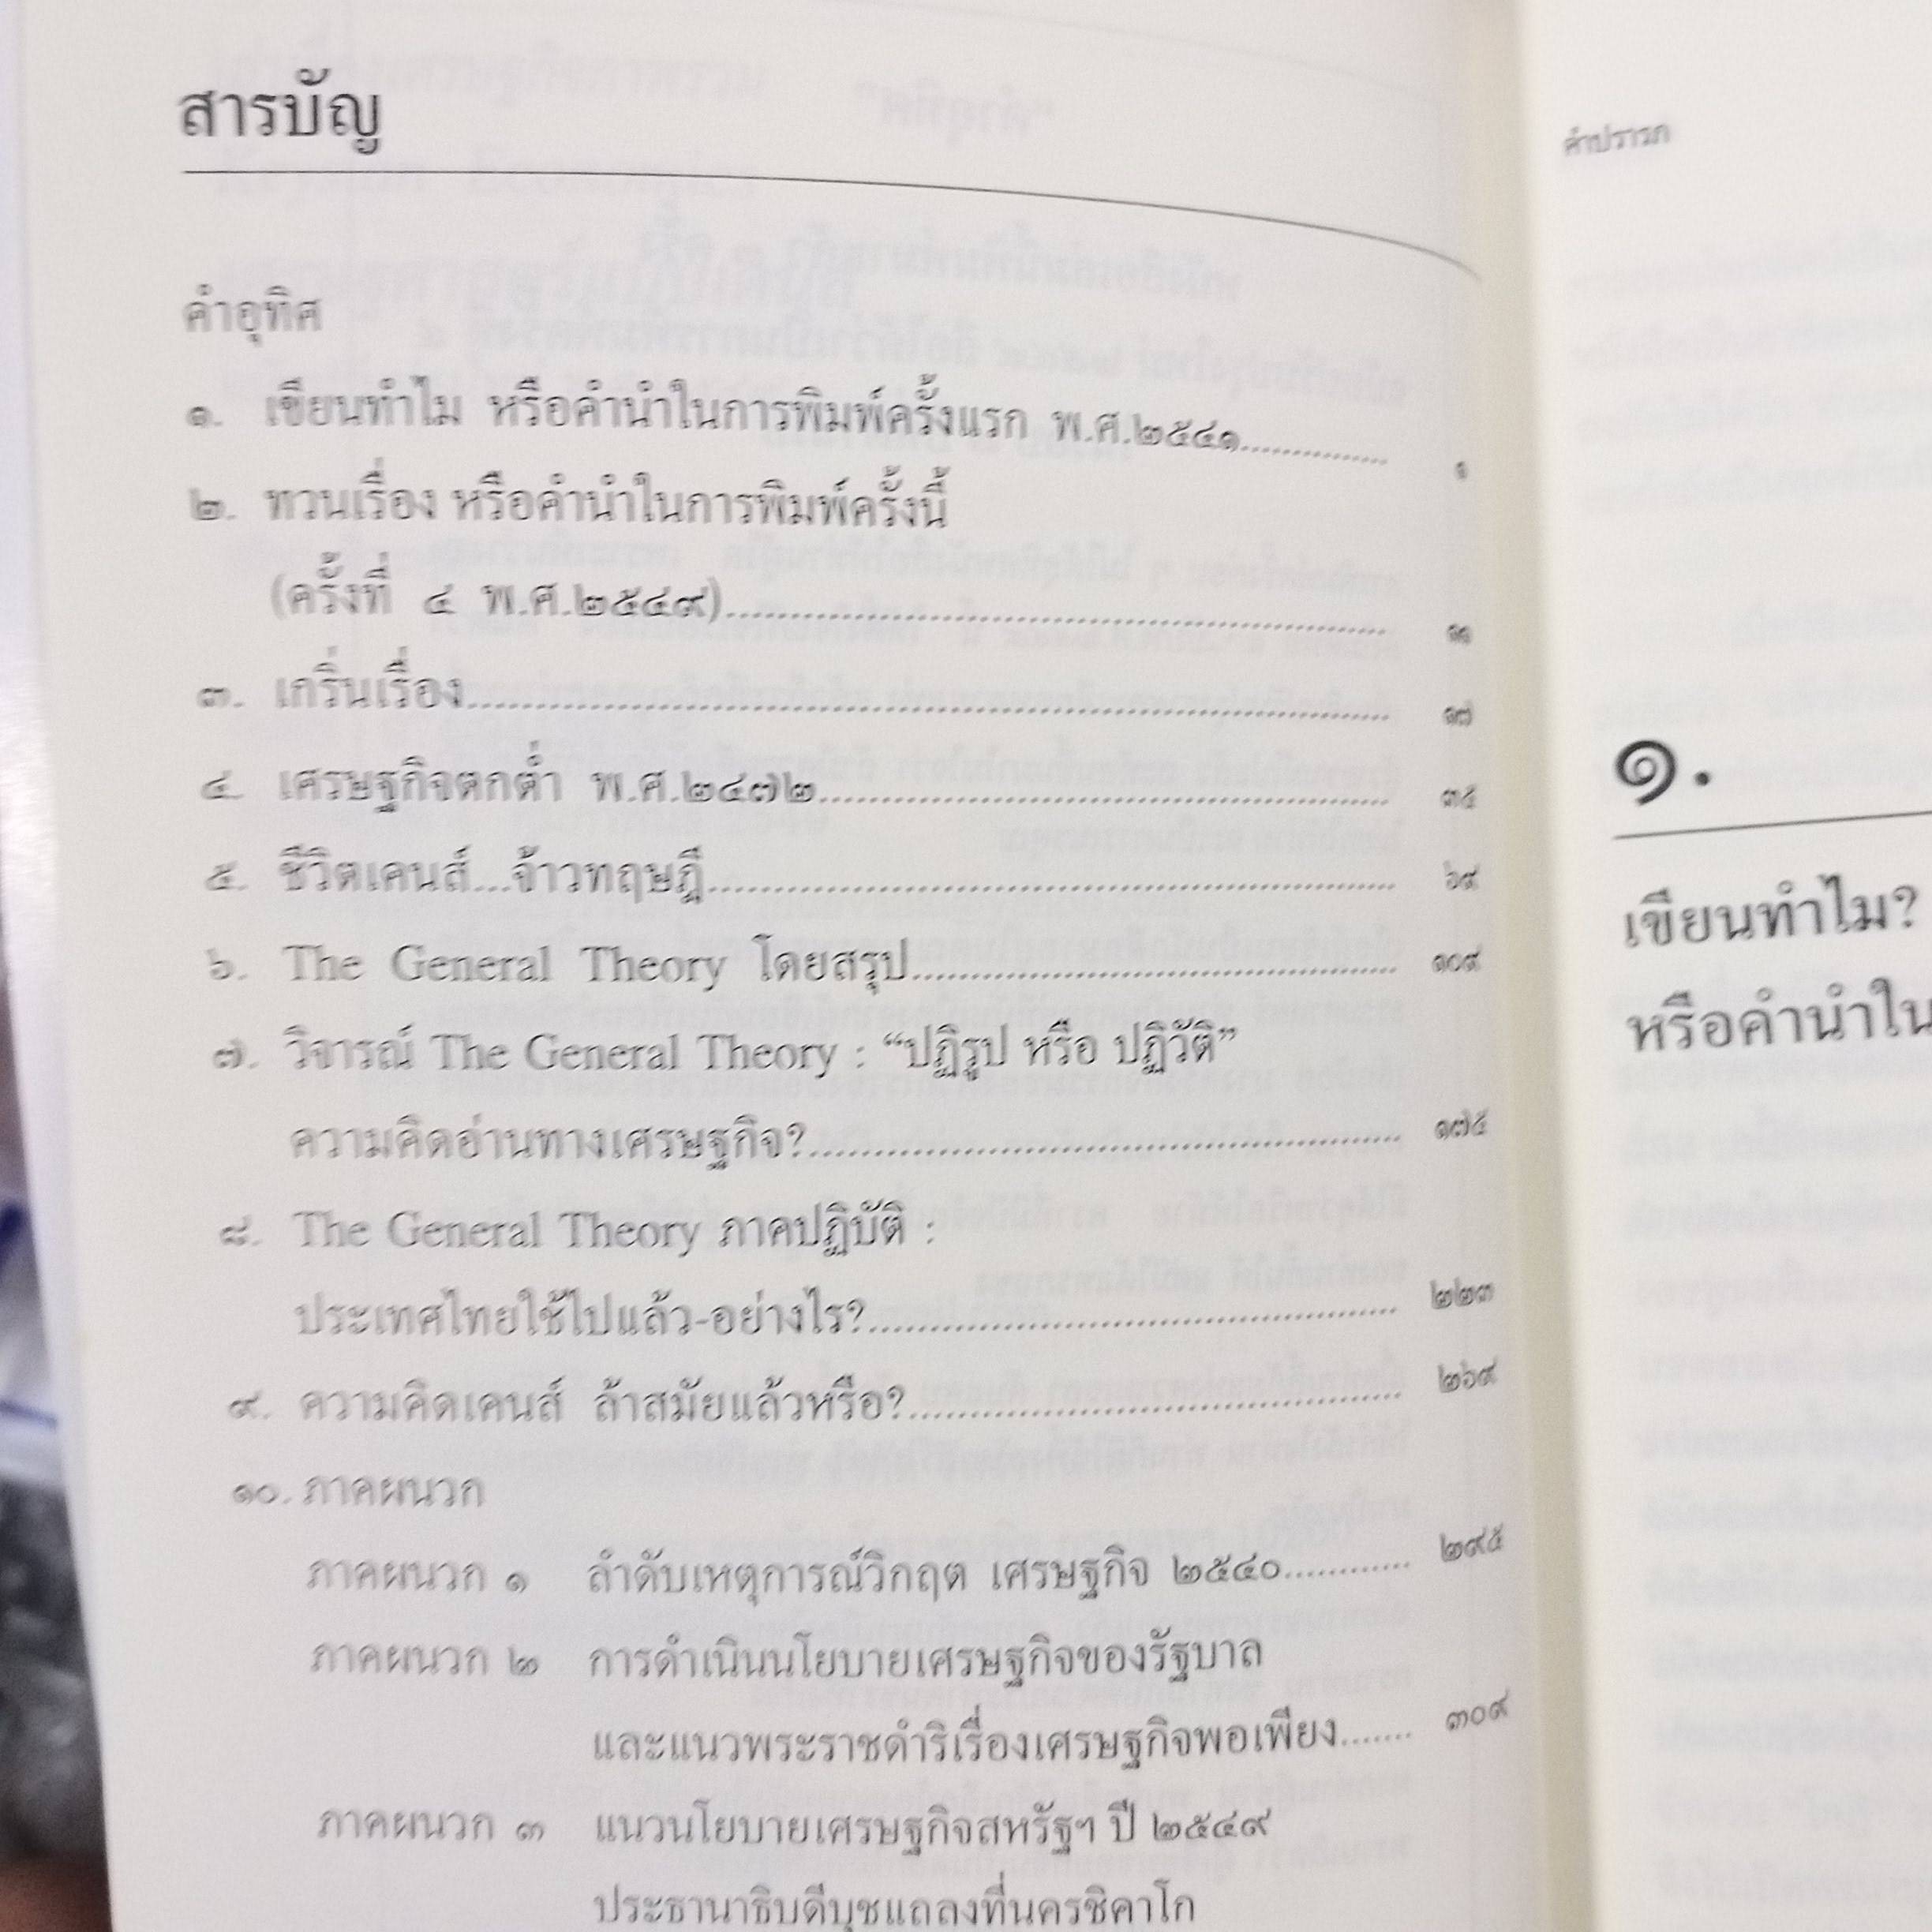 สารบัญ
คำอุทิศ
๑. เขียนทำไม หรือคำนำในการพิมพ์ครั้งแรก พ.ศ.๒๕๔๑.................. ๑
๒. ทวนเรื่อง หรือคำนำในการพิมพ์ครั้งนี้
(ครั้งที่ ๔ พ.ศ.๒๕๔๙).................. ๑๑
๓. เกริ่นเรื่อง.................. ๑๗
๔. เศรษฐกิจตกต่ำ พ.ศ.๒๔๗๒.................. ๓๕
๕. ชีวิตเคนส์...จ้าวทฤษฎี.................. ๖๙
๖. The General Theory โดยสรุป.................. ๑๐๙
๗. วิจารณ์ The General Theory : “ปฏิรูป หรือ ปฏิวัติ”
ความคิดอ่านทางเศรษฐกิจ?.................. ๑๗๕
๘. The General Theory ภาคปฏิบัติ :
ประเทศไทยใช้ไปแล้ว-อย่างไร?.................. ๒๒๓
๙. ความคิดเคนส์ ล้าสมัยแล้วหรือ?.................. ๒๖๙
๑๐. ภาคผนวก
ภาคผนวก ๑ ลำดับเหตุการณ์วิกฤต เศรษฐกิจ ๒๕๔๐............ ๒๙๕
ภาคผนวก ๒ การดำเนินนโยบายเศรษฐกิจของรัฐบาล
และแนวพระราชดำริเรื่องเศรษฐกิจพอเพียง....... ๓๐๙
ภาคผนวก ๓ แนวนโยบายเศรษฐกิจสหรัฐฯ ปี ๒๕๔๙
ประธานาธิบดีบุชแถลงที่นครชิคาโก
คำปรารภ
๑.
เขียนทำไม?
หรือคำนำใน